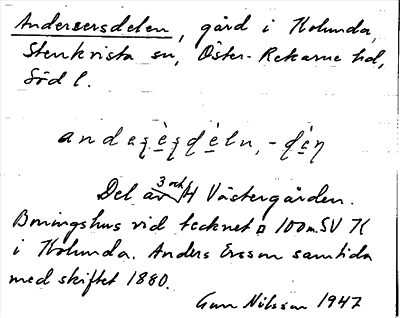 Andersersdelen, gård i Kolunda,
Stenkvista sn, Öster-Rekarne hd,
Södl.
Del av 3 och 4 Västergården.
Boningshus vid tecknet ▫ 100 m. SV K
i Kolunda. Anders Ersson samtida
med skiftet 1860.
Gun Nilsson 1947